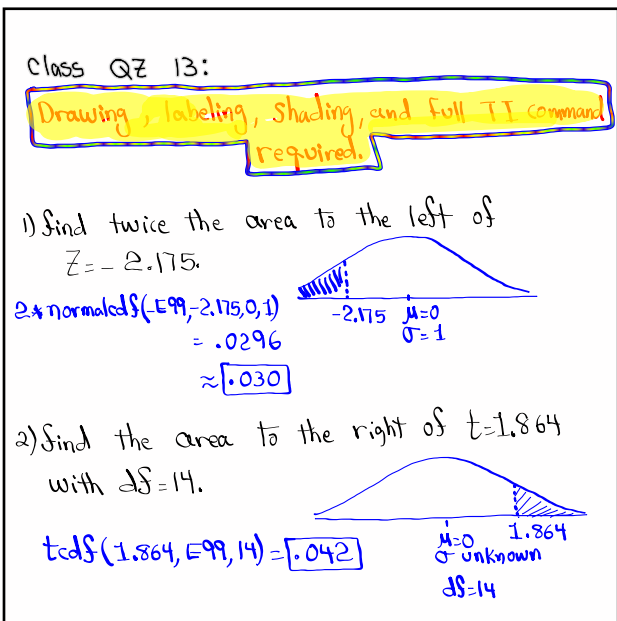 Class QZ 13:
Drawing, labeling, Shading, and full TI command
required.
1) find twice the area to the left of
Z=-2.175.
2*normalcdf(-E99,-2.175,0,1)
= .0296
≈ .030
-2.175 μ=0
σ=1
2) find the area to the right of t=1.864
with df=14.
tcdf(1.864, E99, 14) = .042
μ=0 1.864
σ unknown
df=14